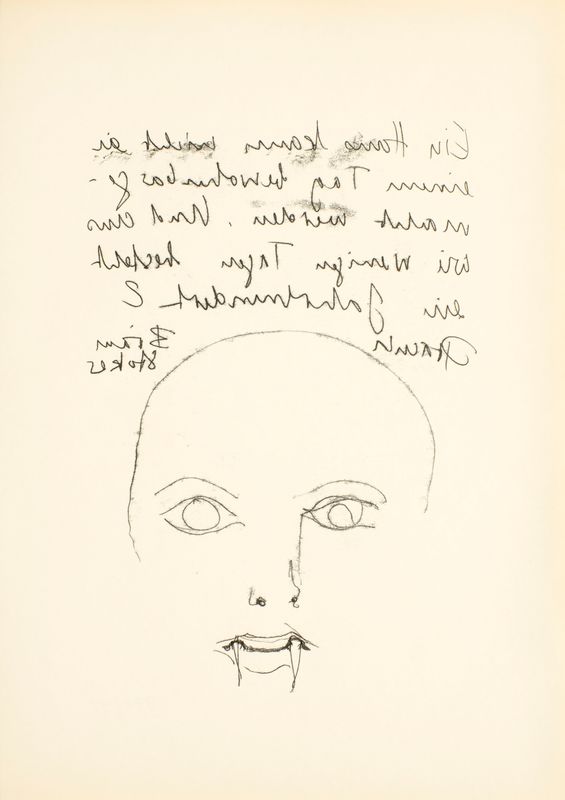 Ein Haus kann nicht in
einem Tag bewohnbar ge-
macht werden. Und aus
wie wenigen Tagen besteht
ein Jahrhundert?
Dracula Bram
Stoker